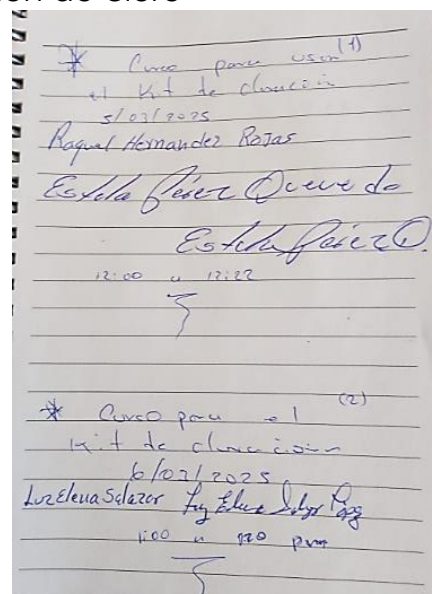 * Curso para usar (1)
el Kit de cloración
5/03/2025
Raquel Hernandez Rojas
Estela Pérez Quevedo
Estela Pérez Q.
12:00 a 12:22
* Curso para el (2)
Kit de cloración
6/03/2025
Luz Elena Salazar Luz Elena
1:00 a 1:20 pm